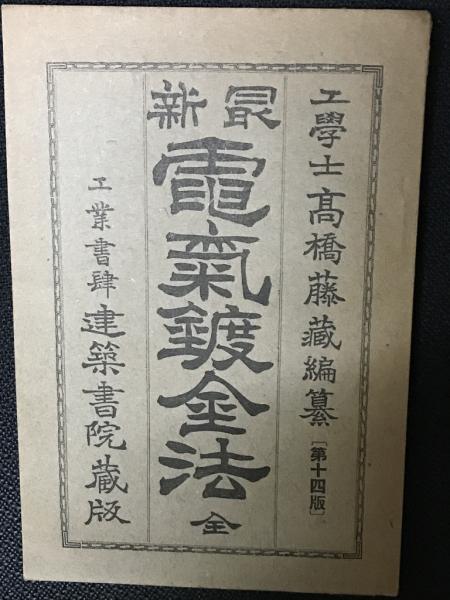 工學士高橋藤藏編纂［第十四版］
最新
電氣鍍金法 全
工業書肆建築書院藏版